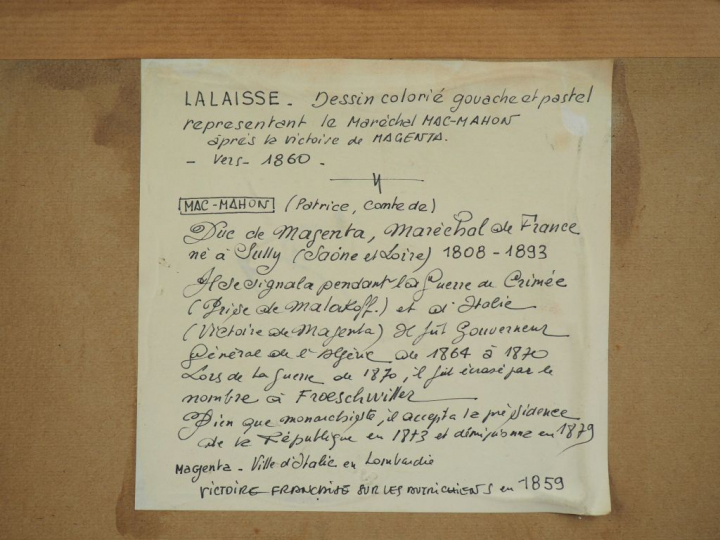 LALAISSE - Dessin colorié gouache et pastel
representant le Maréchal MAC-MAHON
après la victoire de MAGENTA.
- Vers - 1860 -
MAC-MAHON (Patrice, Comte de)
Duc de Magenta, Maréchal de France
né à Sully (Saône et Loire) 1808 - 1893
Il se signala pendant la Guerre de Crimée
(Prise de Malakoff.) et d'Italie
(Victoire de Magenta) Il fut Gouverneur
Général de l'Algérie de 1864 à 1870
Lors de la guerre de 1870, il fut écrasé par le
nombre à Froeschwiller
Bien que monarchiste, il accepta la présidence
de la République en 1873 et démissionne en 1879
Magenta - Ville d'Italie en Lombardie
VICTOIRE FRANÇAISE SUR LES AUTRICHIENS en 1859